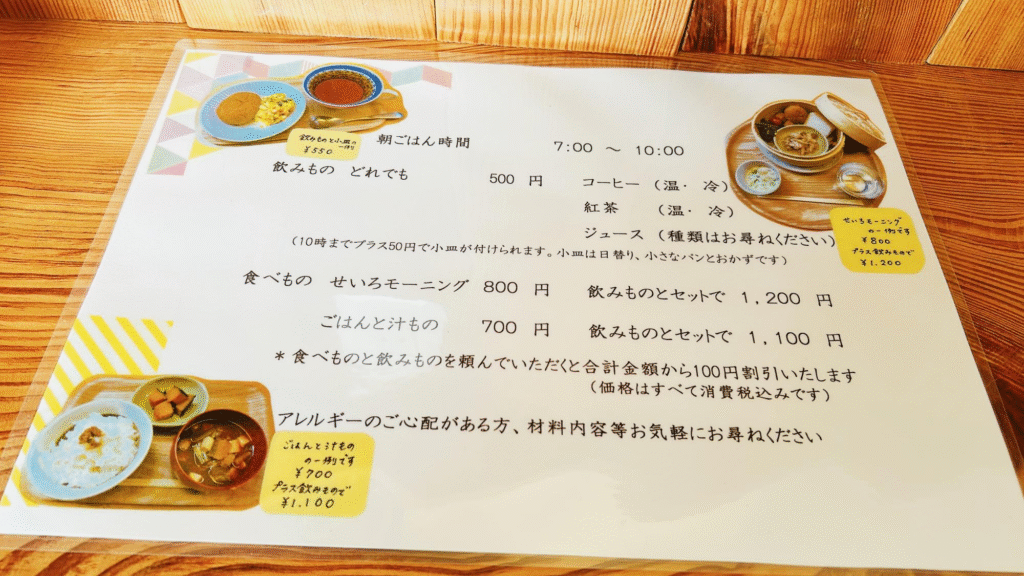 飲みものと小皿の
一例り
¥550
朝ごはん時間 7:00 ～ 10:00
飲みもの どれでも 500 円 コーヒー (温・ 冷)
紅茶 (温・ 冷)
ジュース (種類はお尋ねください)
(10時までプラス50円で小皿が付けられます。小皿は日替り、小さなパンとおかずです)
せいろモーニング
の一例です
¥800
プラス飲みもので
¥1,200
食べもの せいろモーニング 800 円 飲みものとセットで 1,200 円
ごはんと汁もの 700 円 飲みものとセットで 1,100 円
＊食べものと飲みものを頼んでいただくと合計金額から100円割引いたします
(価格はすべて消費税込みです)
アレルギーのご心配がある方、材料内容等お気軽にお尋ねください
ごはんと汁もの
の一例です
¥700
プラス飲みもので
¥1,100